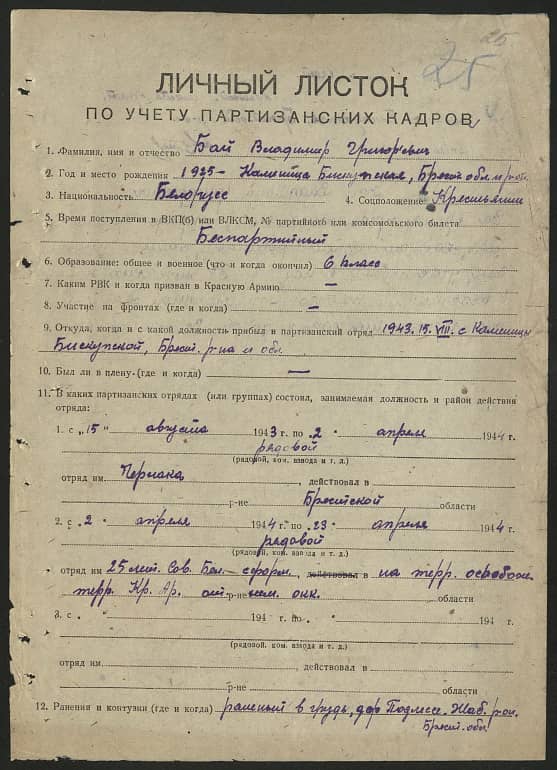 25
25
ЛИЧНЫЙ ЛИСТОК
ПО УЧЕТУ ПАРТИЗАНСКИХ КАДРОВ
1. Фамилия, имя и отчество Бай Владимир Григорьевич
2. Год и место рождения 1925 - Каменица Бискупская, Брест. обл. и р-она
3. Национальность Белорусс 4. Соцположение Крестьянин
5. Время поступления в ВКП(б) или ВЛКСМ, № партийного или комсомольского билета
Беспартийный
6. Образование: общее и военное (что и когда окончил) 6 класс
7. Каким РВК и когда призван в Красную Армию —
8. Участие на фронтах (где и когда) —
9. Откуда, когда и с какой должность прибыл в партизанский отряд 1943. 15. VIII. с Каменицы
Бискупской, Брест. р-на и обл.
10. Был ли в плену (где и когда) —
11. В каких партизанских отрядах (или группах) состоял, занимаемая должность и район действия
отряда:
1. с „15" августа 1943 г. по „2" апреля 1944 г.
рядовой
(рядовой, ком. взвода и т. д.)
отряд им. Чернака, действовал в
р-не Брестской области
2. с „2" апреля 1944 г. по „23" апреля 1944 г.
рядовой
(рядовой, ком. взвода и т. д.)
отряд им 25 лет. Сов. Бел. - сформ. действовал в на терр. освобожд.
терр. Кр. Ар. от р-не нем. окк. области
3. с „ " 194 г. по „ " 194 г.
(рядовой, ком. взвода и т. д.)
отряд им. , действовал в
р-не области
12. Ранения и контузии (где и когда) раненый в грудь, дер. Подлесе. Жаб. р-он.
Брест. обл.